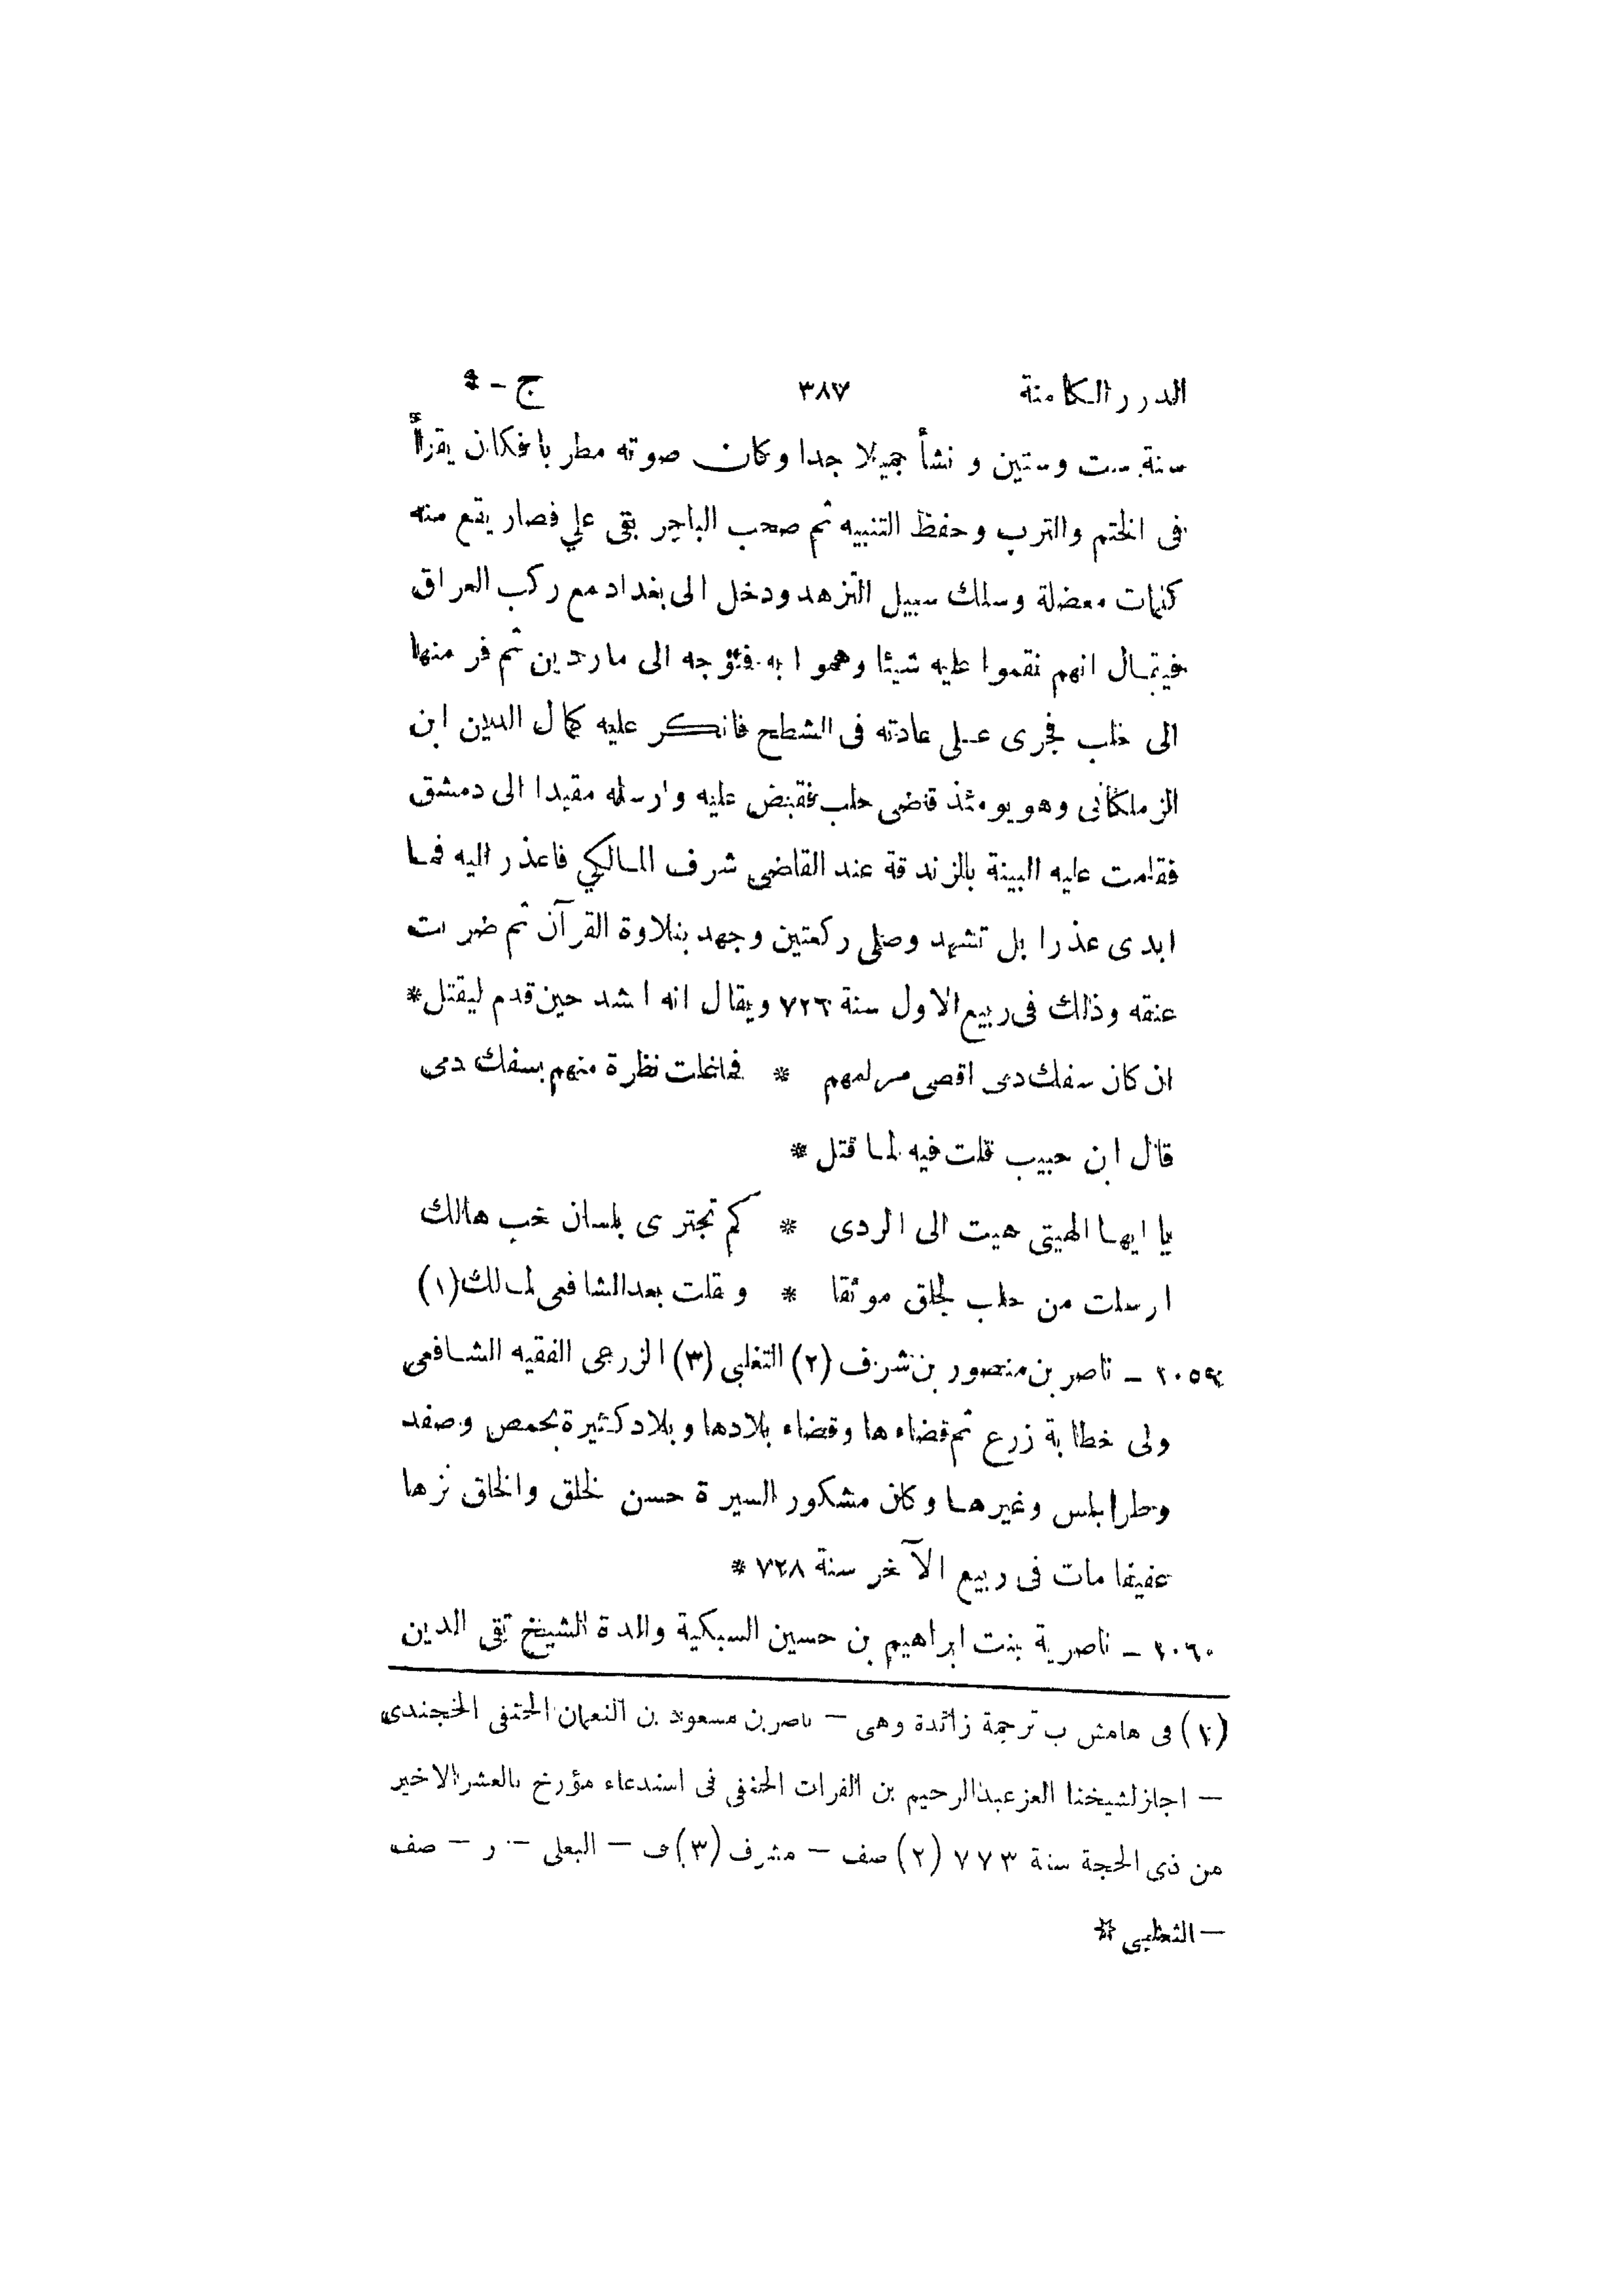 الدرر الكامنة ٣٨٧ ج - ٤
سنة ست وستين ونشأ جميلا جدا وكان صوته مطربا فكان يقرأ
فى الختم والترب وحفظ التنبيه ثم صحب الباجر بقى على فصار يقع منه
كلمات معضلة وسلك سبيل التزهد ودخل الى بغداد مع ركب العراق
فيقال انهم نقموا عليه شيئا وهموا به فتوجه الى ماردين ثم فر منها
الى حلب فجرى على عادته فى الشطح فانكر عليه كمال الدين ابن
الزملكانى وهو يومئذ قاضى حلب فقبض عليه وارسله مقيدا الى دمشق
فقامت عليه البينة بالزندقة عند القاضى شرف المالكي فاعذر اليه فما
ابدى عذرا بل تشهد وصلى ركعتين وجهد بتلاوة القرآن ثم ضربت
عنقه وذلك فى ربيع الاول سنة ٧٢٦ ويقال انه انشد حين قدم ليقتل *
ان كان سفك دمى اقصى مرامهم * فما غلت نظرة منهم بسفك دمى
قال ابن حبيب قلت فيه لما قتل *
يا ايها الهيتى هيت الى الردى * كم تجترى بلسان خب هالك
ارسلت من حلب لجلق موثقا * وقلت بعد الشافعى لمالك (١)
٢٠٥٩ - ناصر بن منصور بن شرف (٢) التغلبى (٣) الزرعى الفقيه الشافعى
ولى خطابة زرع ثم قضاءها وقضاء بلادها وبلاد كثيرة بحمص وصفد
وطرابلس وغيرها وكان مشكور السيرة حسن الخلق والخلق نزها
عفيفا مات فى ربيع الآخر سنة ٧٢٨ *
٢٠٦٠ - ناصرية بنت ابراهيم بن حسين السبكية والدة الشيخ تقى الدين
(١) فى هامش ب ترجمة زائدة وهى - ناصر بن مسعود بن النعمان الحنفى الخجندى
- اجاز لشيخنا العز عبد الرحيم بن الفرات الحنفى فى استدعاء مؤرخ بالعشر الاخير
من ذى الحجة سنة ٧٧٣ (٢) صف - مشرف (٣) ف - البعلى - ر - صف
- الثعلبى *